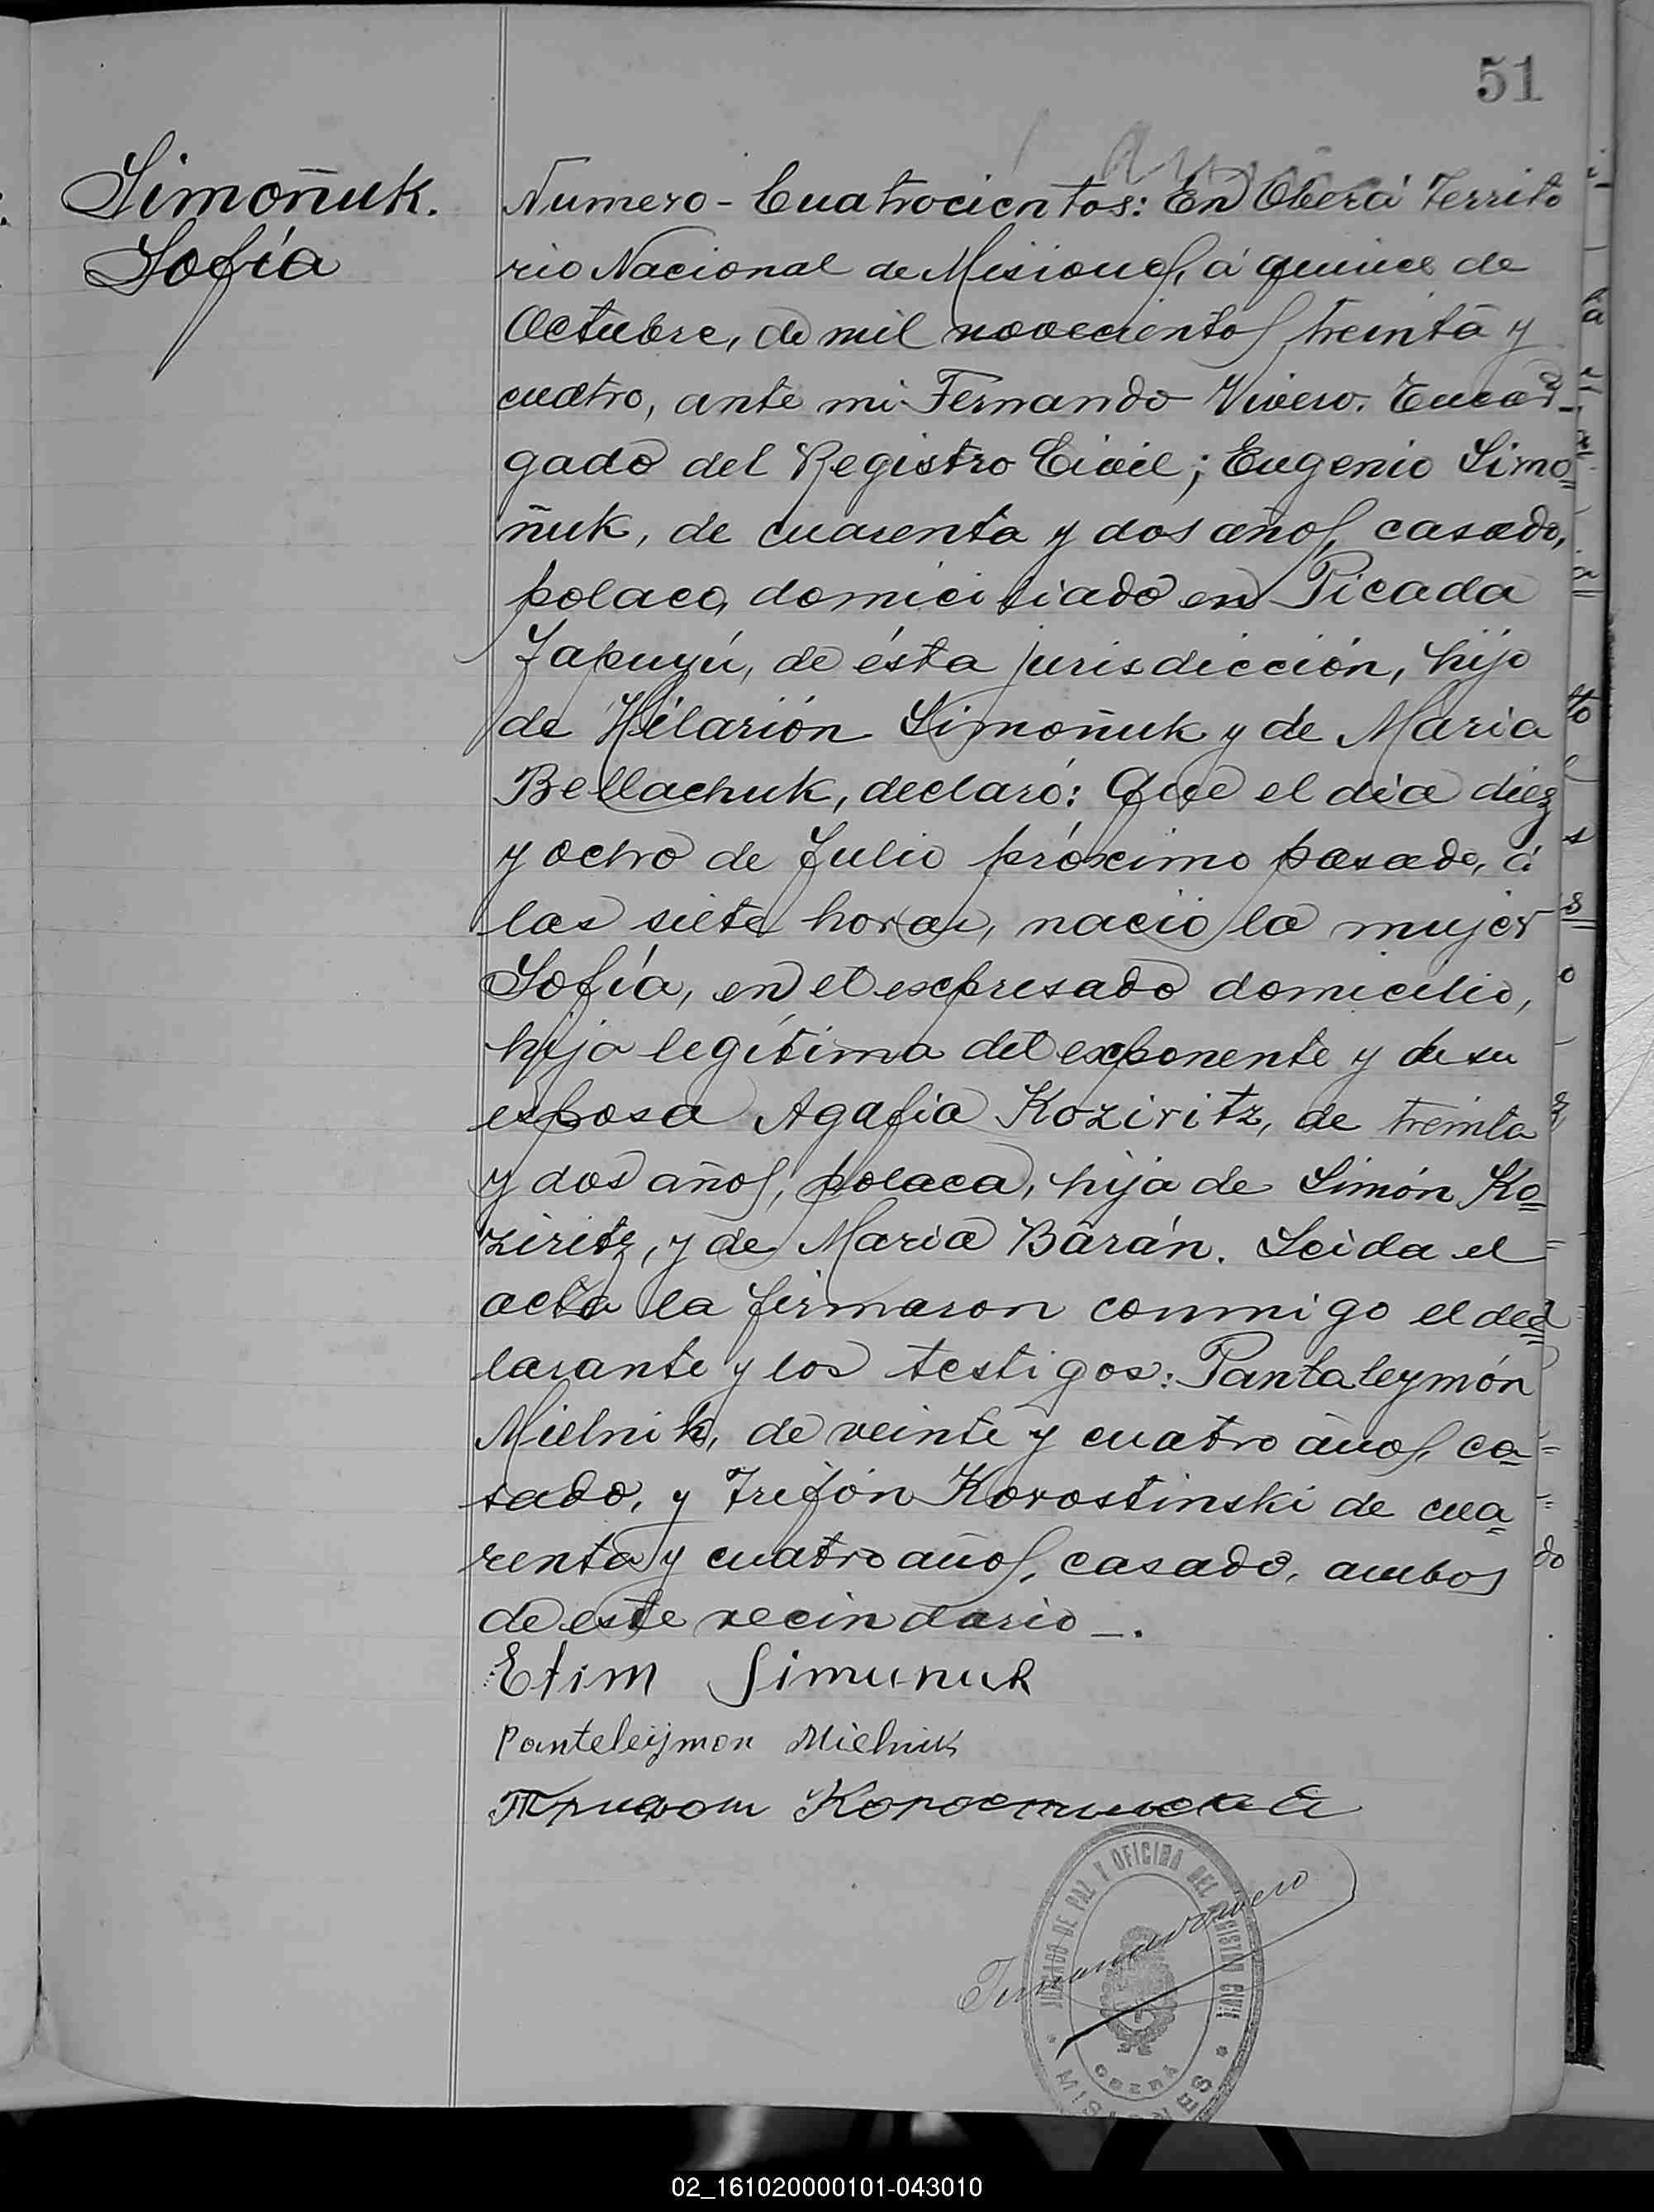 51
Simoñuk.
Sofía
Numero - Cuatrocientos: En Oberá Territo
rio Nacional de Misiones, á quince de
Octubre, de mil novecientos treinta y
cuatro, ante mi Fernando Vivero. Encar-
gado del Registro Civil; Eugenio Simo=
ñuk, de cuarenta y dos años, casado,
polaco, domiciliado en Picada
Yapuyú, de ésta jurisdicción, hijo
de Hilarión Simoñuk y de Maria
Bellachuk, declaró: Que el día diez
y ocho de Julio próximo pasado, á
las siete horas, nació la mujer
Sofía, en el expresado domicilio,
hija legítima del exponente y de su
esposa Agafia Koziritz, de treinta
y dos años, polaca, hija de Simón Ko=
ziritz, y de Maria Barán. Leida el
acta la firmaron conmigo el dec=
larante y los testigos: Pantaleymón
Mielnik, de veinte y cuatro años, ca=
sado, y Trifón Korostinski de cua=
renta y cuatro años, casado, ambos
de este vecindario _.
Efim Simunuk
Panteleijmon Mielnik
Трифон Коростинский
Fernando Vivero
JUZGADO DE PAZ Y OFICINA DEL REGISTRO CIVIL
OBERÁ
MISIONES
02_161020000101-043010